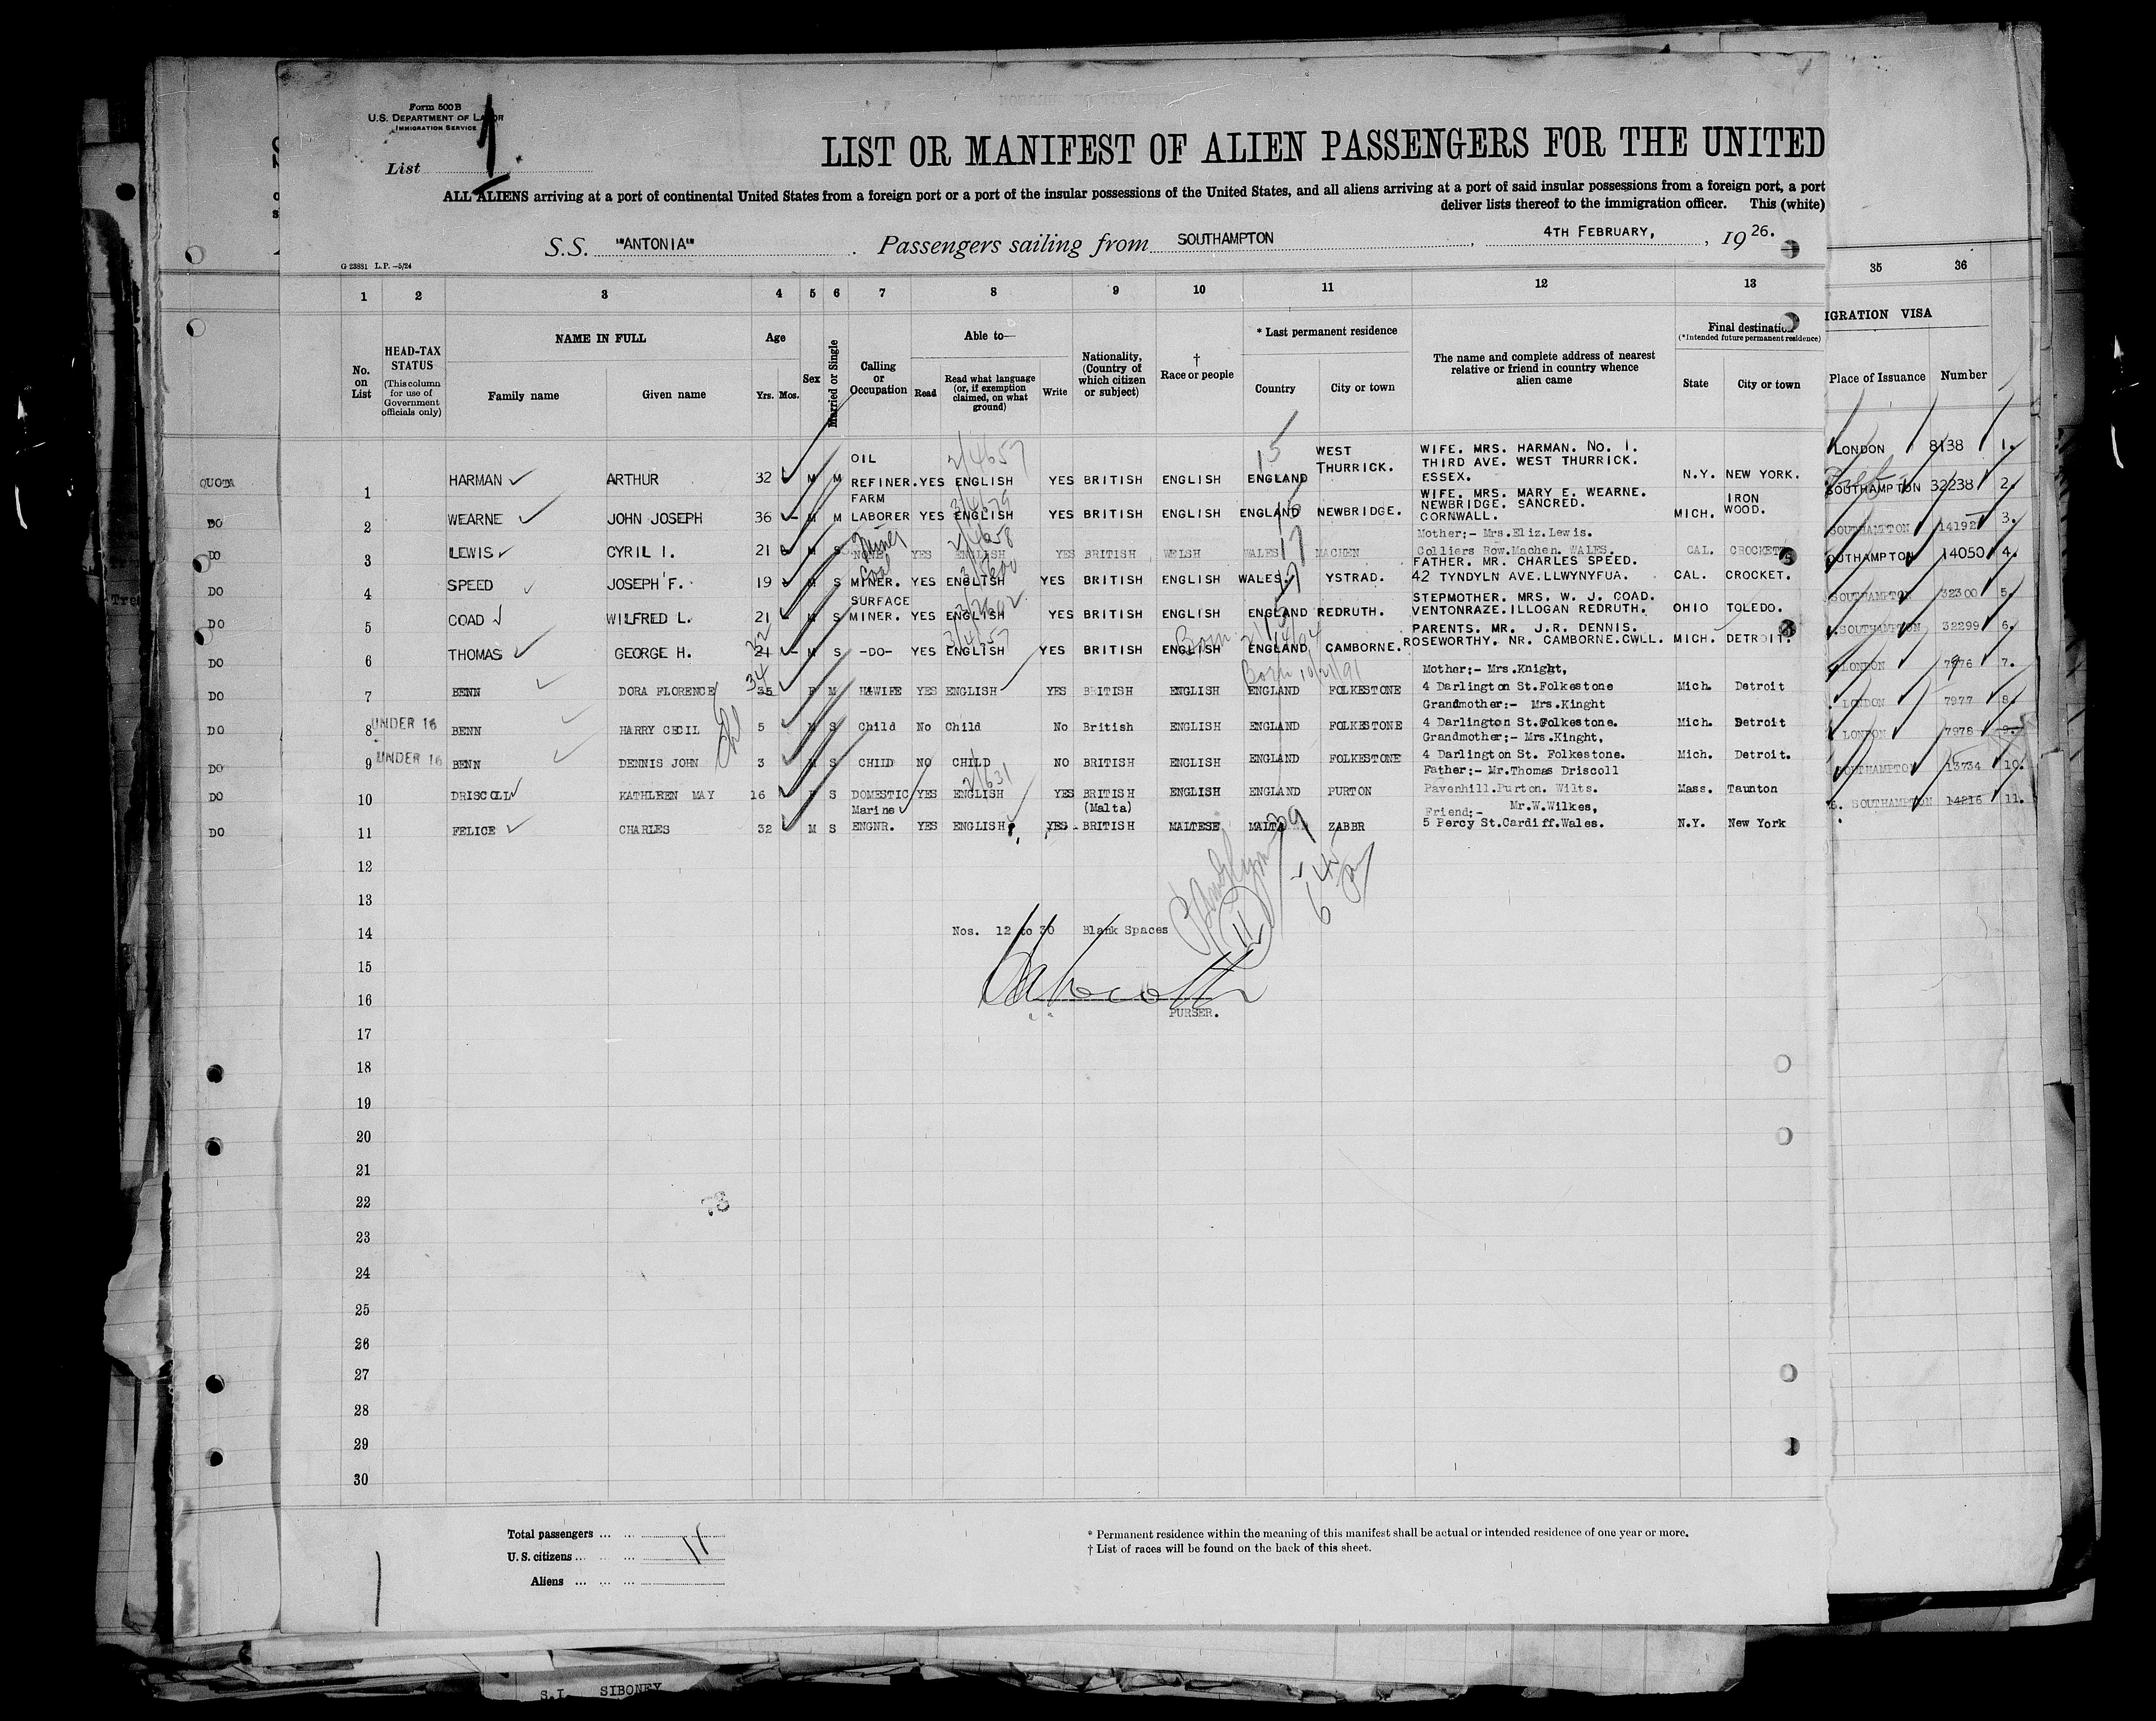 Form 500 B
U.S. DEPARTMENT OF LABOR
IMMIGRATION SERVICE
List 1
LIST OR MANIFEST OF ALIEN PASSENGERS FOR THE UNITED
ALL ALIENS arriving at a port of continental United States from a foreign port or a port of the insular possessions of the United States, and all aliens arriving at a port of said insular possessions from a foreign port, a port
deliver lists thereof to the immigration officer. This (white)
S.S. "ANTONIA" . Passengers sailing from SOUTHAMPTON , 4TH FEBRUARY, , 19 26.
G 23881 L.P.—5/24
1 2 3 4 5 6 7 8 9 10 11 12 13 35 36
No. on List
HEAD-TAX STATUS (This column for use of Government officials only)
NAME IN FULL
Family name Given name
Age Yrs. Mos.
Sex
Married or Single
Calling or Occupation
Able to—
Read Read what language (or, if exemption claimed, on what ground) Write
Nationality, (Country of which citizen or subject)
† Race or people
* Last permanent residence
Country City or town
The name and complete address of nearest relative or friend in country whence alien came
Final destination
(*Intended future permanent residence)
State City or town
IGRATION VISA
Place of Issuance Number
QUOTA 1 HARMAN ARTHUR 32 M M OIL REFINER. YES ENGLISH 2/4657 YES BRITISH ENGLISH ENGLAND 15 WEST THURRICK. WIFE. MRS. HARMAN. No. 1. THIRD AVE. WEST THURRICK. ESSEX. N.Y. NEW YORK. LONDON 8138 1.
DO 2 WEARNE JOHN JOSEPH 36 M M FARM LABORER YES ENGLISH YES BRITISH ENGLISH ENGLAND NEWBRIDGE. WIFE. MRS. MARY E. WEARNE. NEWBRIDGE. SANCRED. CORNWALL. MICH. IRON WOOD. SOUTHAMPTON 32238 2.
DO 3 LEWIS CYRIL I. 21 M S NONE Miner YES ENGLISH 2/4658 YES BRITISH WELSH WALES 17 MACHEN Mother;- Mrs.Eliz.Lewis. Colliers Row.Machen. WALES. CAL. CROCKET SOUTHAMPTON 14192 3.
DO 4 SPEED JOSEPH F. 19 M S Coal MINER. YES ENGLISH YES BRITISH ENGLISH WALES. 17 YSTRAD. FATHER. MR. CHARLES SPEED. 42 TYNDYLN AVE.LLWYNYFUA. CAL. CROCKET. OUTHAMPTON 14050 4.
DO 5 COAD WILFRED L. 21 M S SURFACE MINER. YES ENGLISH YES BRITISH ENGLISH ENGLAND REDRUTH. STEPMOTHER. MRS. W. J. COAD. VENTONRAZE.ILLOGAN REDRUTH. OHIO TOLEDO. SOUTHAMPTON 32300 5.
DO 6 THOMAS GEORGE H. 21 22 M S -DO- YES ENGLISH YES BRITISH ENGLISH Born ENGLAND CAMBORNE. PARENTS. MR. J.R. DENNIS. ROSEWORTHY. NR. CAMBORNE.CWLL. MICH. DETROIT. SOUTHAMPTON 32299 6.
DO 7 BENN DORA FLORENCE 35 34 F M H&WIFE YES ENGLISH YES BRITISH ENGLISH Born 10/21/91 ENGLAND FOLKESTONE Mother;- Mrs.Knight, 4 Darlington St.Folkestone Mich. Detroit LONDON 7976 7.
DO 8 UNDER 16 BENN HARRY CECIL 5 M S Child No Child No British ENGLISH ENGLAND FOLKESTONE Grandmother:- Mrs.Kinght 4 Darlington St.Folkestone. Mich. Detroit LONDON 7977 8.
DO 9 UNDER 16 BENN DENNIS JOHN 3 M S CHILD NO CHILD NO BRITISH ENGLISH ENGLAND FOLKESTONE Grandmother;- Mrs.Kinght, 4 Darlington St. Folkestone. Mich. Detroit. LONDON 7978 9.
DO 10 DRISCOLL KATHLEEN MAY 16 F S DOMESTIC YES ENGLISH 2/631 YES BRITISH ENGLISH ENGLAND PURTON Father;- Mr.Thomas Driscoll Pavenhill.Purton. Wilts. Mass. Taunton SOUTHAMPTON 13734 10.
DO 11 FELICE CHARLES 32 M S Marine ENGNR. YES ENGLISH YES BRITISH (Malta) MALTESE MALTA ZABBR Friend;- Mr.W.Wilkes, 5 Percy St.Cardiff.Wales. N.Y. New York SOUTHAMPTON 14216 11.
12
13
14 Nos. 12 to 30 Blank Spaces 11
15
16
PURSER.
17
18
19
20
21
22
78
23
24
25
26
27
28
29
30
Total passengers ... ...
U. S. citizens ... ... 11
Aliens ... ... ...
* Permanent residence within the meaning of this manifest shall be actual or intended residence of one year or more.
† List of races will be found on the back of this sheet.
S.I. SIBONEY